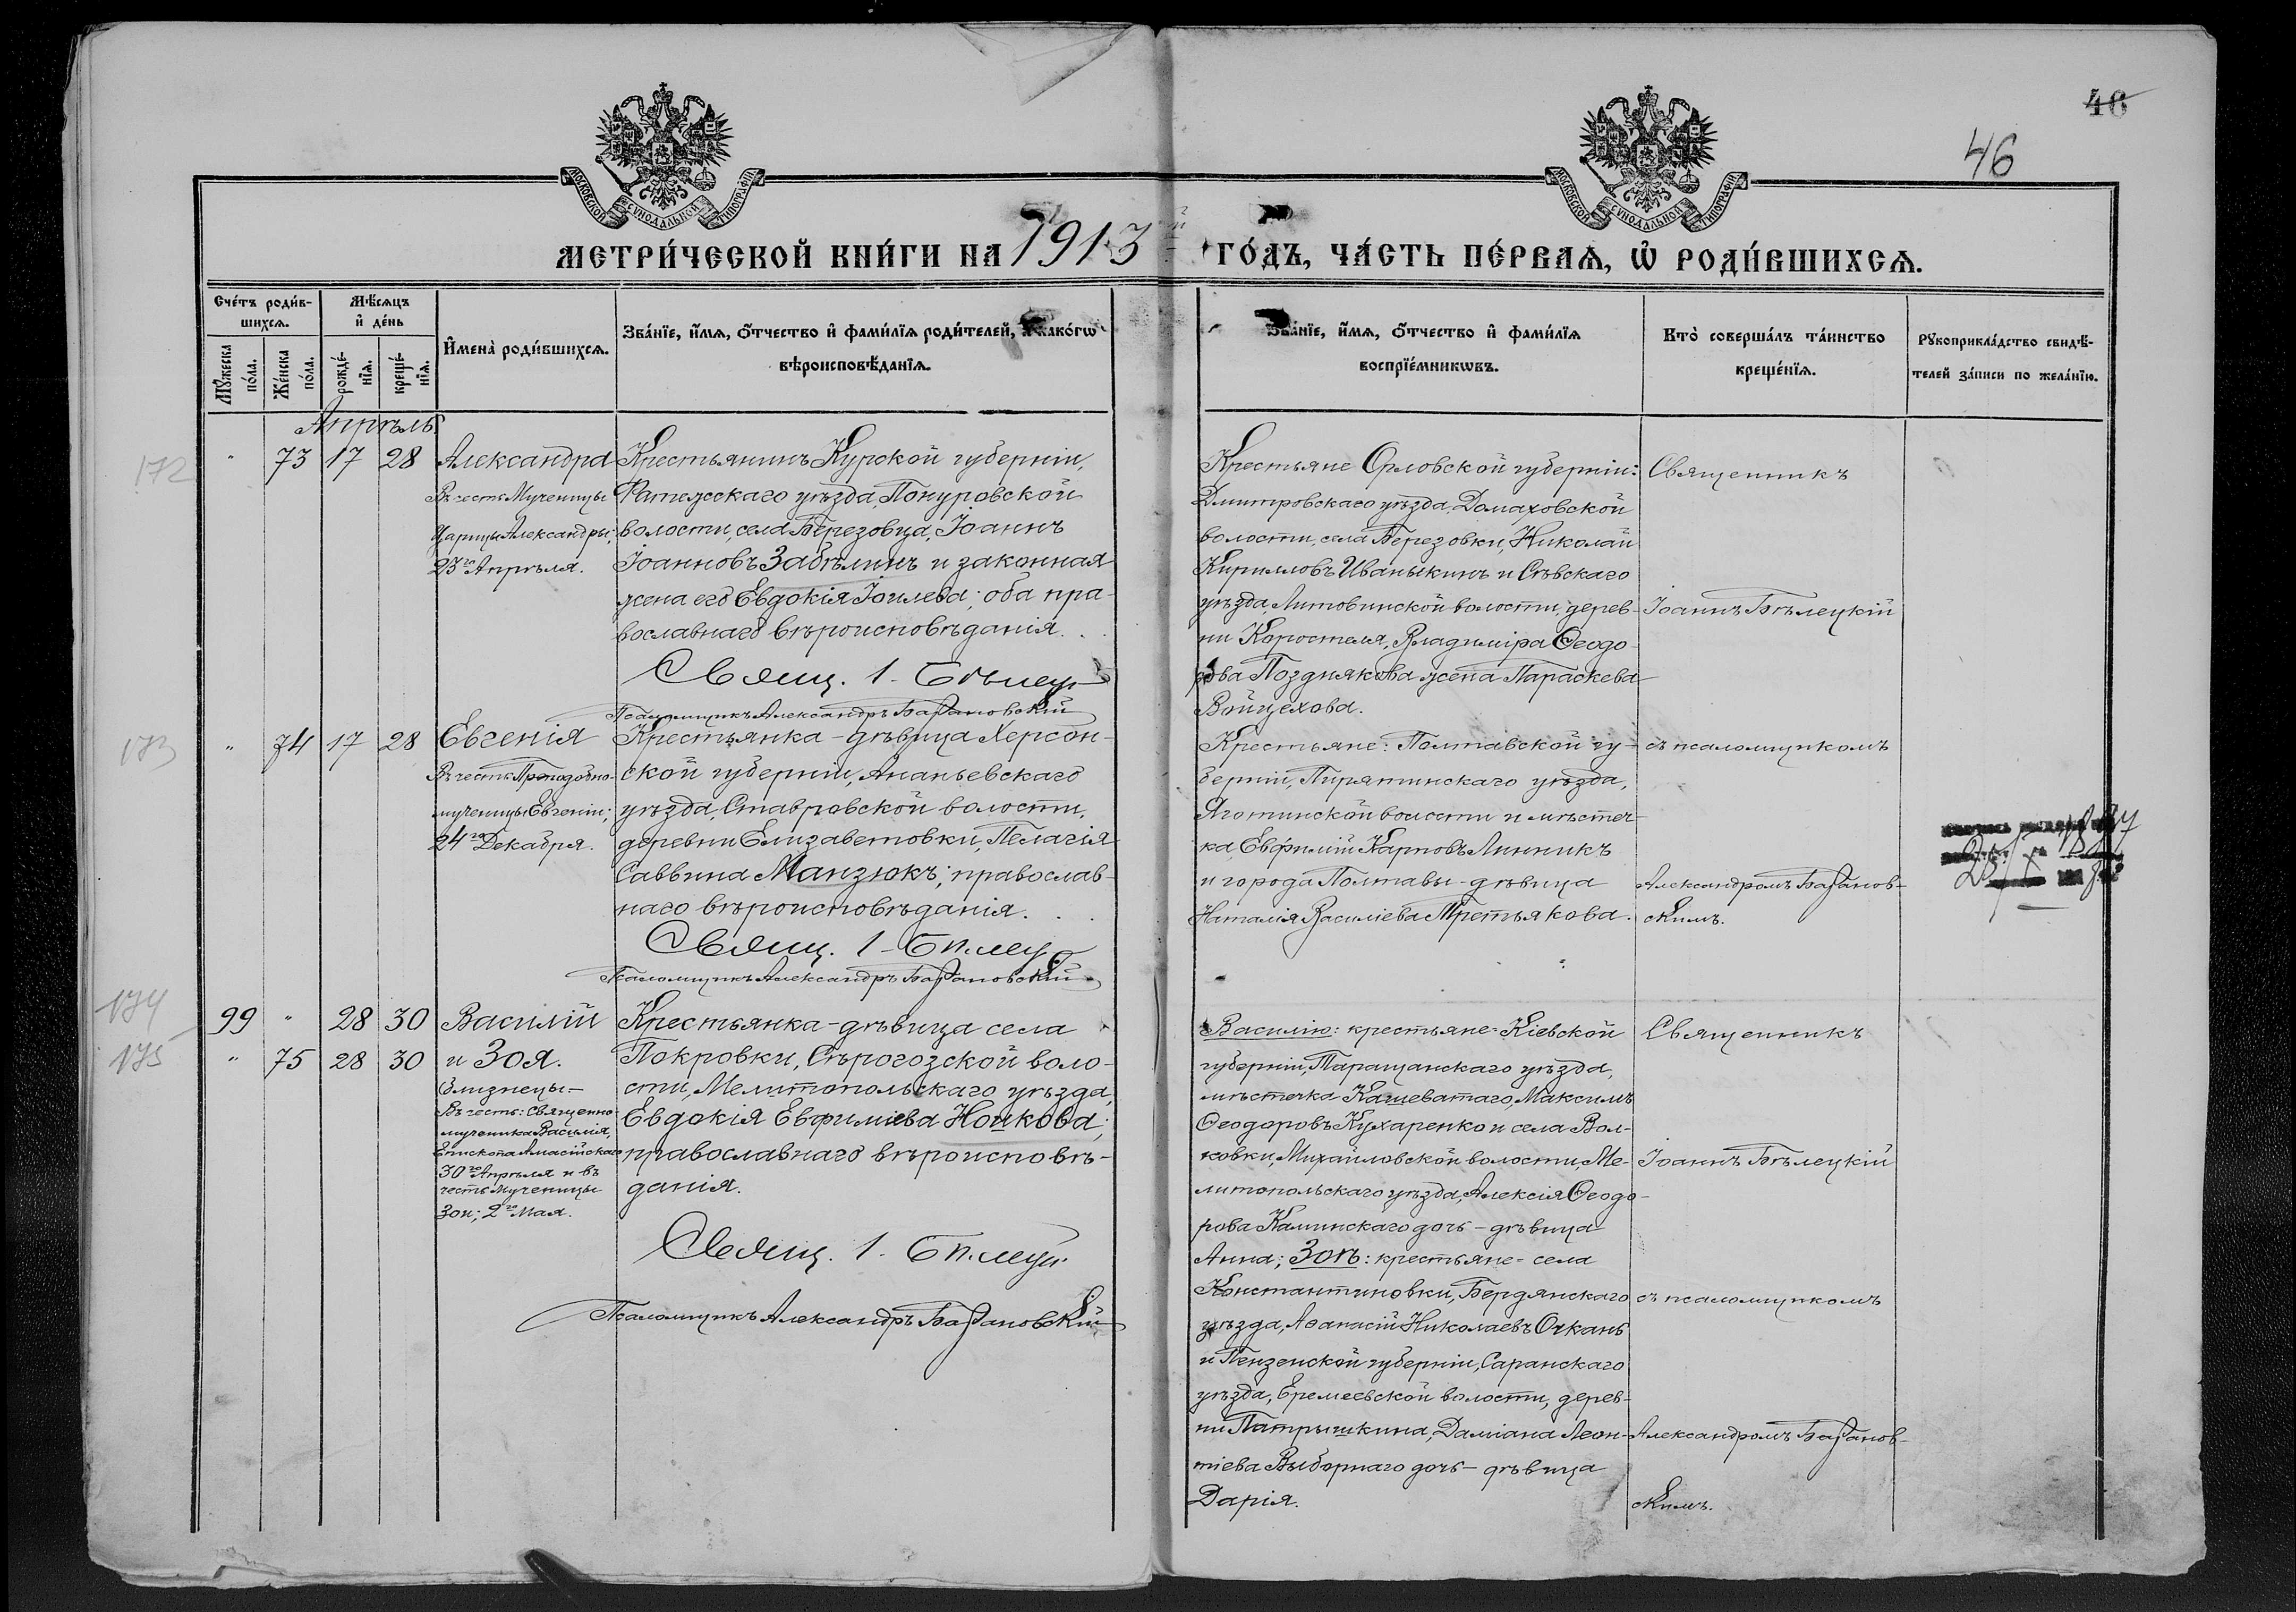 46
46
МОСКОВСКОЙ СѴНОДАЛЬНОЙ ТИПОГРАФІИ
МОСКОВСКОЙ СѴНОДАЛЬНОЙ ТИПОГРАФІИ
МЕТРИ́ЧЕСКОЙ КНИ́ГИ НА 1913й ГО́ДЪ, ЧА́СТЬ ПЕ́РВАѦ, Ѡ҆ РОДИ́ВШИХСѦ.
Сче́тъ роди́в-
шихсѧ.
Мꙋ́жеска по́ла.
Же́нска по́ла.
Мѣ́сѧцъ
и҆ де́нь
рожде́-
нїѧ.
креще́-
нїѧ.
И҆мена̀ роди́вшихсѧ.
Зва́нїе, и҆́мѧ, ѻ҆́тчество и҆ фами́лїѧ роди́телей, и҆ како́гѡ
вѣроисповѣ́данїѧ.
Зва́нїе, и҆́мѧ, ѻ҆́тчество и҆ фами́лїѧ
воспрїе́мникѡвъ.
Кто̀ соверша́лъ та́инство
креще́нїѧ.
Рꙋкоприкла́дство свидѣ́-
телей за́писи по жела́нїю.
Апрѣль
172
" 73 17 28
Александра
Въ честь Мученицы
Царицы Александры;
23го Апрѣля.
Крестьянинъ Курской губерніи,
Фатежскаго уѣзда, Понуровской
волости, села Березовца, Іоаннъ
Іоанновъ Забѣлинъ и законная
жена его Евдокія Іоилева; оба пра-
вославнаго вѣроисповѣданія.
Свящ. І. Бѣлец
Псаломщикъ Александръ Базановскій
Крестьяне Орловской губерніи:
Дмитровскаго уѣзда, Домаховской
волости, села Березовки, Николай
Кирилловъ Иванькинъ и Сѣвскаго
уѣзда, Литовинской волости, дерев-
ни Коростеля, Владиміра Ѳеодо-
рова Позднякова жена Параскева
Войцехова.
Священникъ
Іоаннъ Бѣлецкій
173
" 74 17 28
Евгенія
Въ честь Преподобно-
мученицы Евгеніи;
24го Декабря.
Крестьянка-дѣвица Херсон-
ской губерніи, Ананьевскаго
уѣзда, Ставровской волости,
деревни Елизаветовки, Пелагія
Саввина Манзюкъ; православ-
наго вѣроисповѣданія.
Свящ. І. Бѣлец
Псаломщикъ Александръ Базановскій
Крестьяне: Полтавской гу-
берніи, Пирятинскаго уѣзда,
Яготинской волости и мѣстеч-
ка, Евфимій Карповъ Линникъ
и города Полтавы-дѣвица
Наталія Василіева Третьякова.
съ псаломщикомъ
Александромъ Базанов-
скимъ.
174
99 " 28 30
175
" 75 28 30
Василій
и Зоя.
близнецы-
Въ честь: Священно-
мученика Василія,
Епископа Амасійскаго
30го Апрѣля и въ
честь Мученицы
Зои; 2го Мая.
Крестьянка-дѣвица села
Покровки, Сѣрогозской воло-
сти, Мелитопольскаго уѣзда,
Евдокія Евфиміева Ношкова;
православнаго вѣроисповѣ-
данія.
Свящ. І. Бѣлец
Псаломщикъ Александръ Базановскій
Василію: крестьяне-Кіевской
губерніи, Таращанскаго уѣзда,
мѣстечка Кашеватаго, Максимъ
Ѳеодоровъ Кухаренко и села Вол-
ковки, Михайловской волости, Ме-
литопольскаго уѣзда, Алексія Ѳеодо-
рова Каминскаго дочь-дѣвица
Анна; Зоѣ: крестьяне-села
Константиновки, Бердянскаго
уѣзда, Аѳанасій Николаевъ Очкань
и Пензенской губерніи, Саранскаго
уѣзда, Еремеевской волости, дерев-
ни Патрышкина, Даміана Леон-
тіева Выборнаго дочь-дѣвица
Дарія.
Священникъ
Іоаннъ Бѣлецкій
съ псаломщикомъ
Александромъ Базанов-
скимъ.